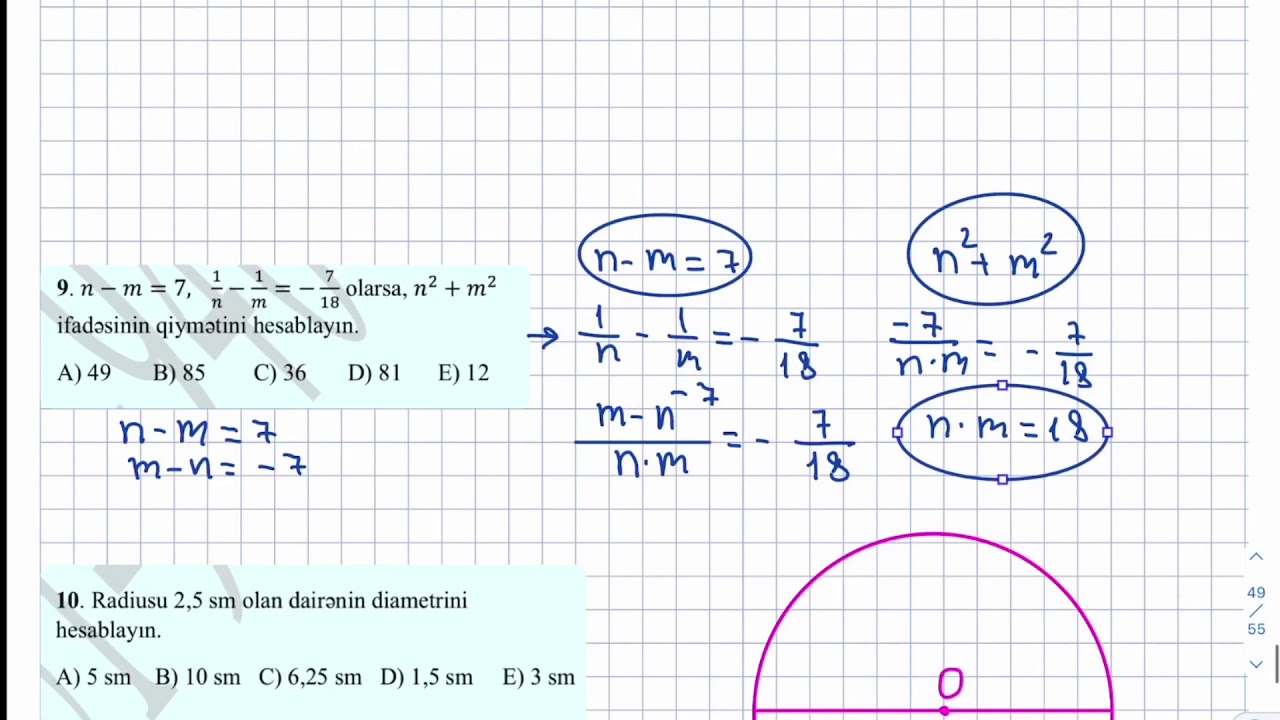 n - m = 7
n² + m²
9. n − m = 7, 1/n − 1/m = − 7/18 olarsa, n² + m²
ifadəsinin qiymətini hesablayın.
A) 49 B) 85 C) 36 D) 81 E) 12
→ 1/n - 1/m = - 7/18
-7/n·m = - 7/18
n - m = 7
m - n = - 7
m - n -7/n·m = - 7/18
n·m = 18
10. Radiusu 2,5 sm olan dairənin diametrini
hesablayın.
A) 5 sm B) 10 sm C) 6,25 sm D) 1,5 sm E) 3 sm
O
49
/
55